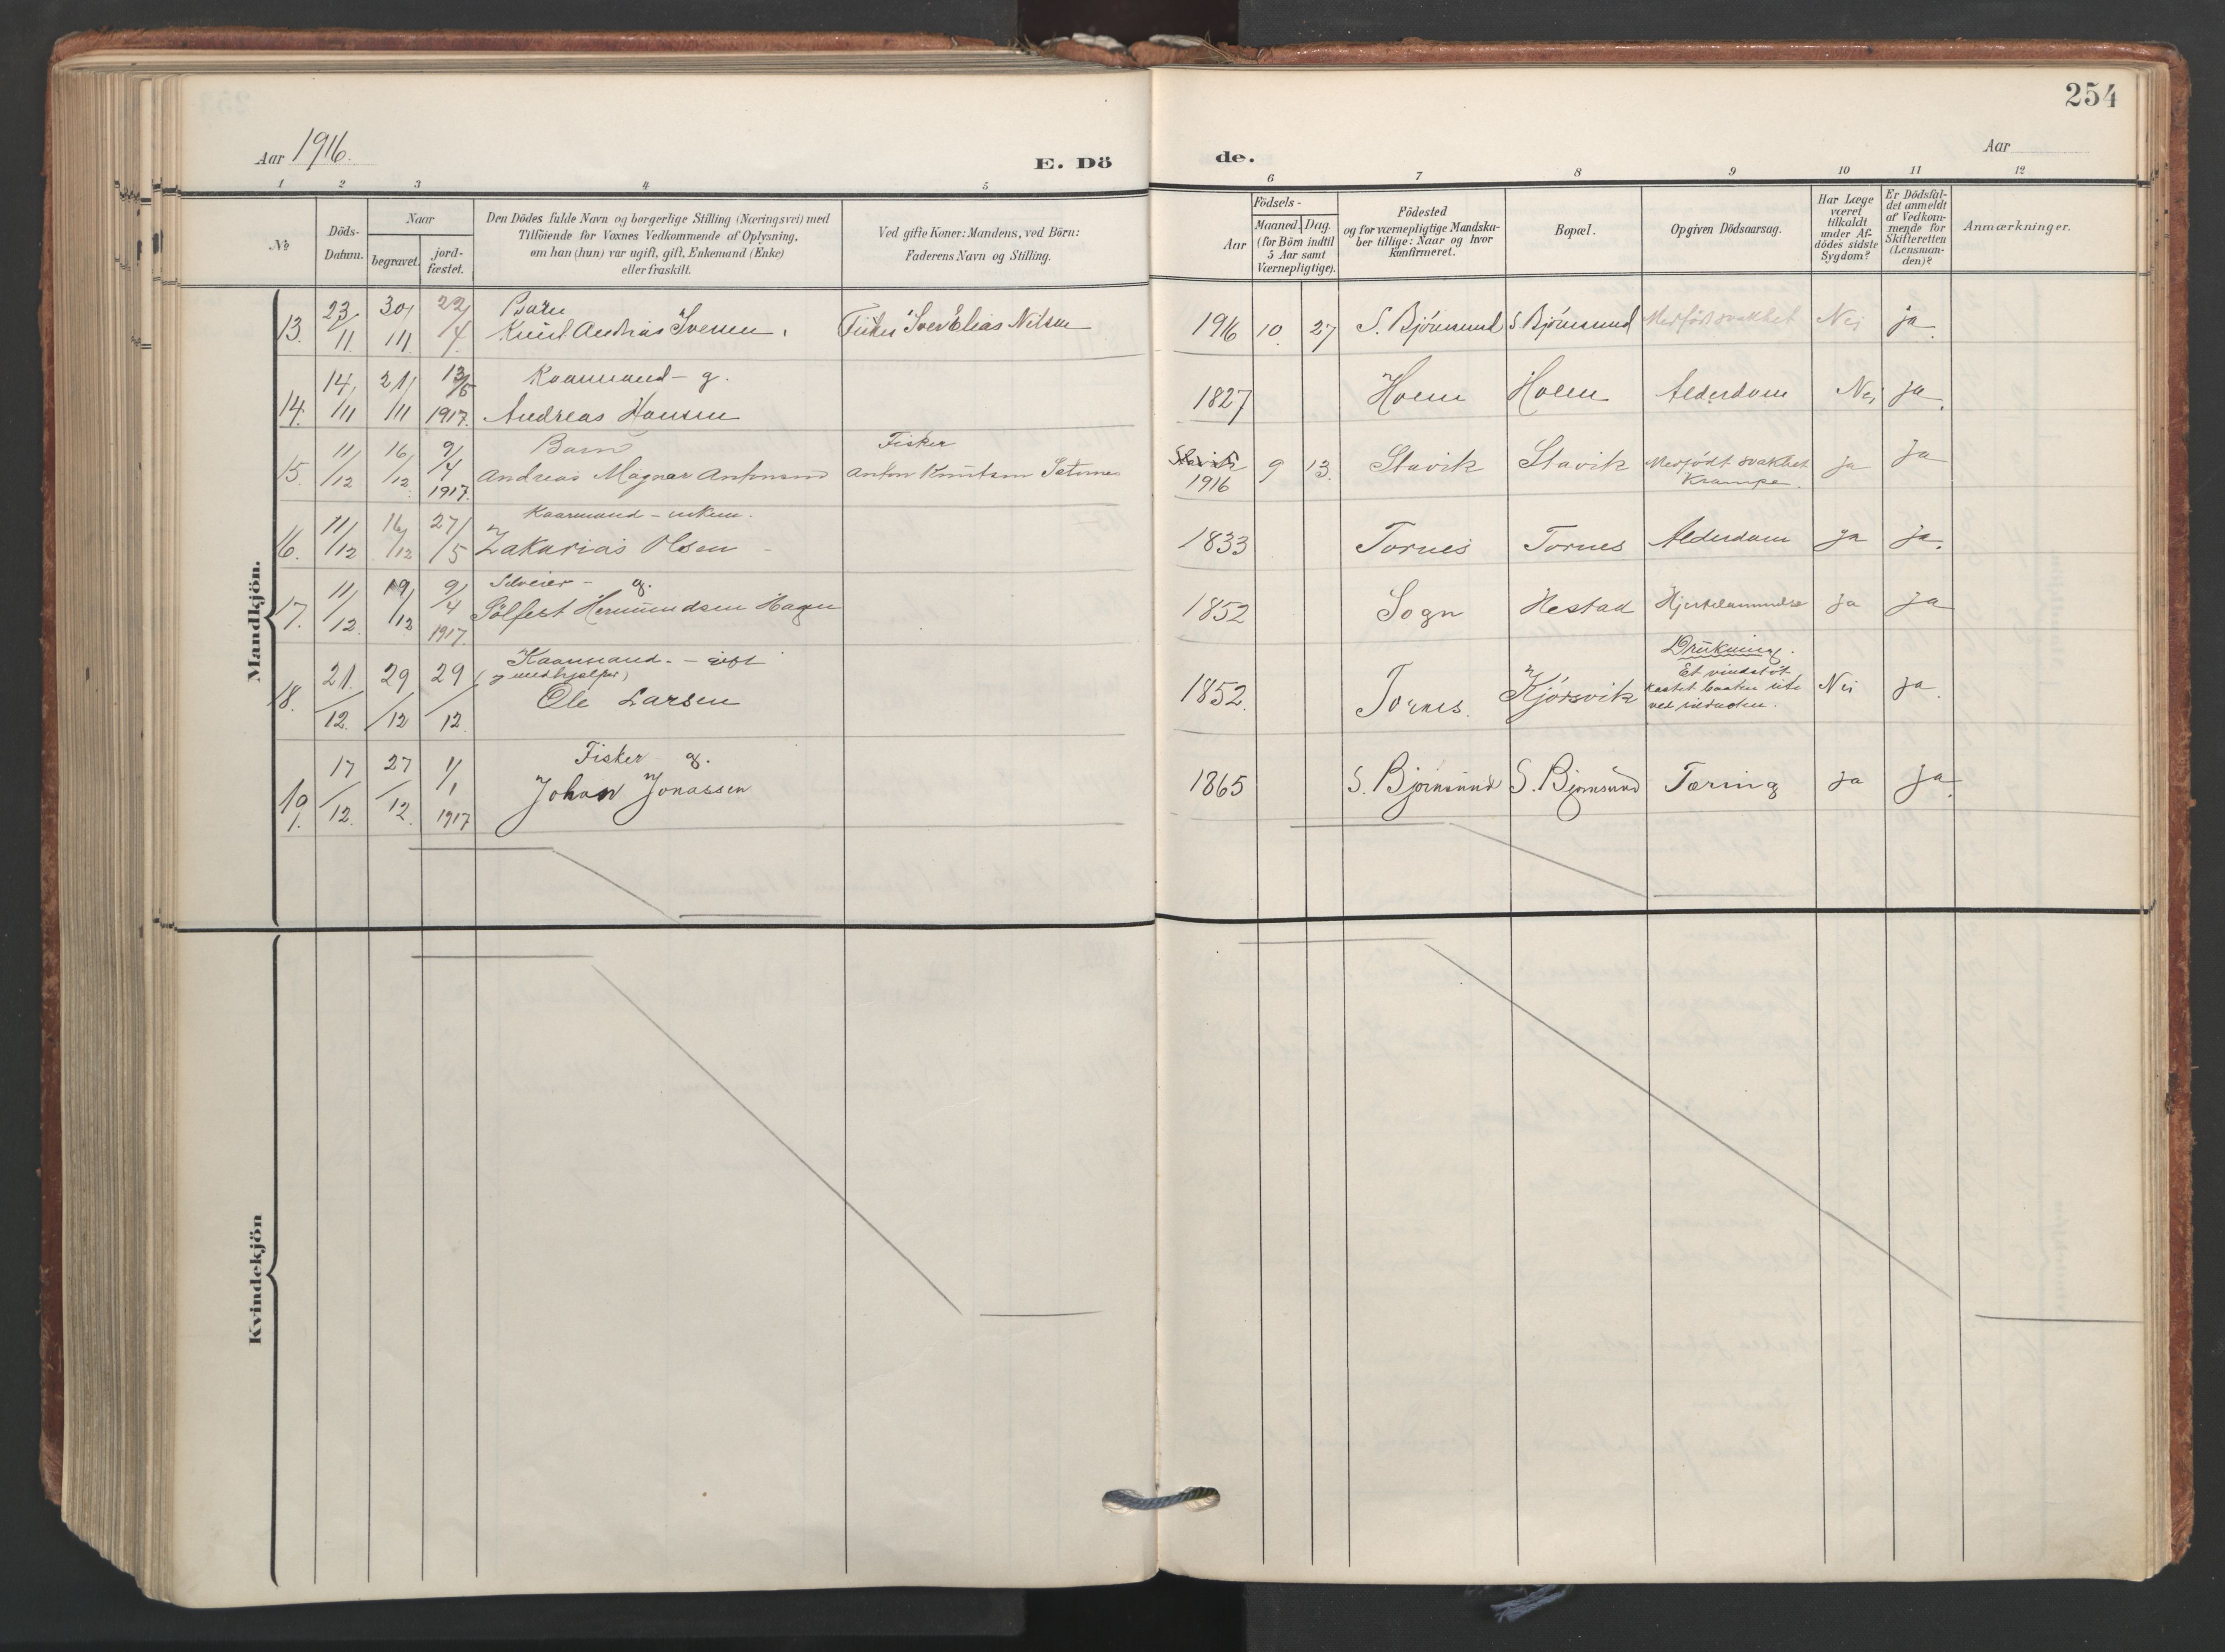 254
Aar 1916.
E. Dö
de.
Aar
1 2 3 4 5
6 7 8 9 10 11 12
№
Döds-
Datum.
Naar
begravet.
jord-
fæstet.
Den Dödes fulde Navn og borgerlige Stilling (Næringsvei) med
Tilföiende for Voxnes Vedkommende af Oplysning,
om han (hun) var ugift, gift, Enkemand (Enke)
eller fraskilt.
Ved gifte Koner: Mandens, ved Börn:
Faderens Navn og Stilling.
Födsels-
Aar
Maaned. Dag.
(for Börn indtil
5 Aar samt
Værnepligtige).
Födested
og for værnepligtige Mandska-
ber tillige: Naar og hvor
konfirmeret.
Bopæl.
Opgiven Dödsaarsag.
Har Læge
været
tilkaldt
under Af-
dödes sidste
Sygdom?
Er Dödsfal-
det anmeldt
af Vedkom-
mende for
Skifteretten
(Lensman-
den)?
Anmærkninger.
Mandkjön.
13. 23/11 30/11 22/4 Barn
Knut Andreas Iversen. Fisker Iver Elias Nilsen 1916 10. 27 S. Björnsund S. Björnsund Medfödt svakhet Nei ja.
14. 14/11 21/11 13/5 1917. Kaarmand - g.
Andreas Hansen 1827 Holm Holm Alderdom Nei ja.
15. 11/12 16/12 9/4 1917. Barn Fisker
Andreas Magnar Antonsen Anton Knutsen 1916 9 13. Stavik Stavik Medfödt svakhet ja ja
Krampe.
16. 11/12 16/12 27/5 Kaarmand - enkem.
Zakarias Olsen 1833 Tornes Tornes Alderdom ja ja.
17. 11/12. 19/12 9/4 1917. Selveier - g.
Sölfest Hermundsen Hagen 1852 Sogn Hestad ja ja
18. 21/12. 29/12 29/12 Kaarmand. - gift
(medhjelper)
Ole Larsen 1852. Tornes. Kjörsvik Drukning.
Et vindstöt
kastet baaten
ved Nei ja.
19. 17/12. 27/12. 1/1 1917 Fisker g.
Johan Jonassen 1865 S. Björnsund S. Björnsund Tæring ja ja.
Kvindekjön